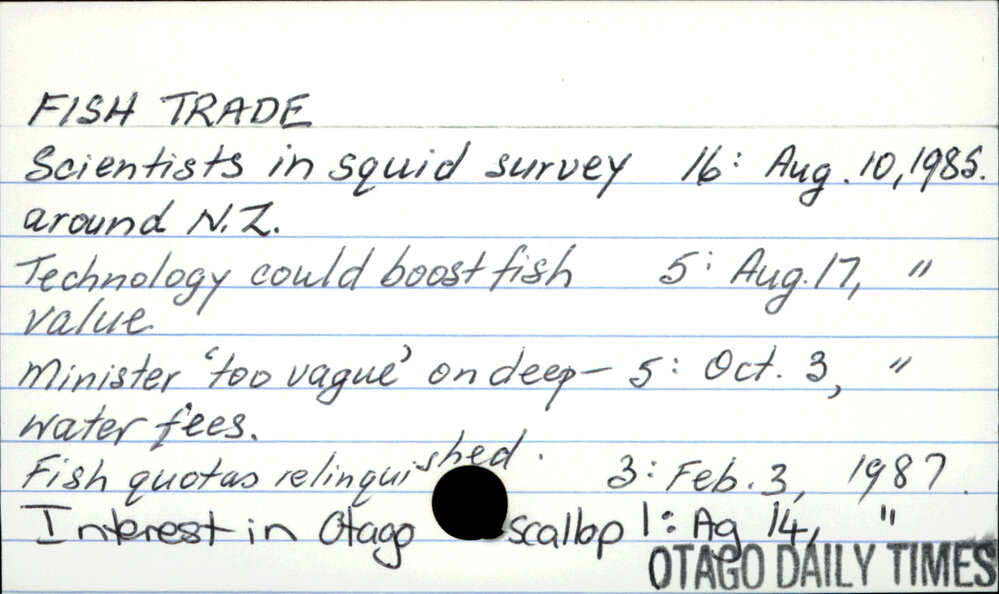 FISH TRADE
Scientists in squid survey 16: Aug. 10, 1985.
around N.Z.
Technology could boost fish 5: Aug. 17, "
value
Minister 'too vague' on deep- 5: Oct. 3, "
water fees.
Fish quotas relinquished. 3: Feb. 3, 1987.
Interest in Otago scallop 1: Ag 14, "
OTAGO DAILY TIMES